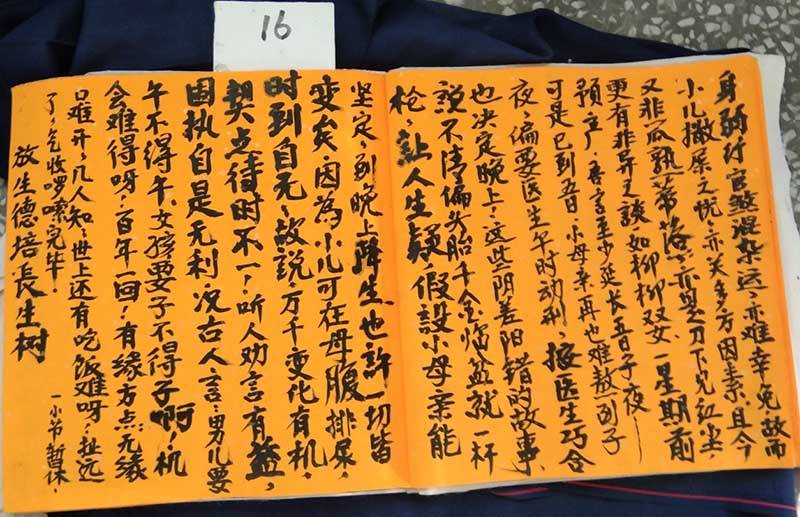 16
身弱行官煞混杂运，亦难幸免，故而
小儿撒尿之忧，亦关多方因素，且今
又非瓜熟蒂落，亦要刀下见红尘
更有非异之談，如柳柳双女，一星期前
预产，言至少延长五日子夜
可是已到五日，小母亲再也难熬，到子
夜，偏要医生午时动刑，按医生巧合
也决定晚上，这些阴差阳错的故事、
説不清，偏胎千金临盆，就一杯
枪，人生疑，假設小母亲能
坚定，到晚上降生，也許一切皆
变矣，因為小儿可在母腹排尿，
时到自无，故説，万千变化有机，
契点待时不一，听人劝言有益，
固执自是无利，况古人言，男儿要
午不得午，女孩要子不得子啊，机
会难得呀，百年一回，有缘方点，无缘
口难开，几人知，世上还有吃饭难呀，扯远
了，乞收啰嗦完毕
一小爷暂休，
放生德培長生树